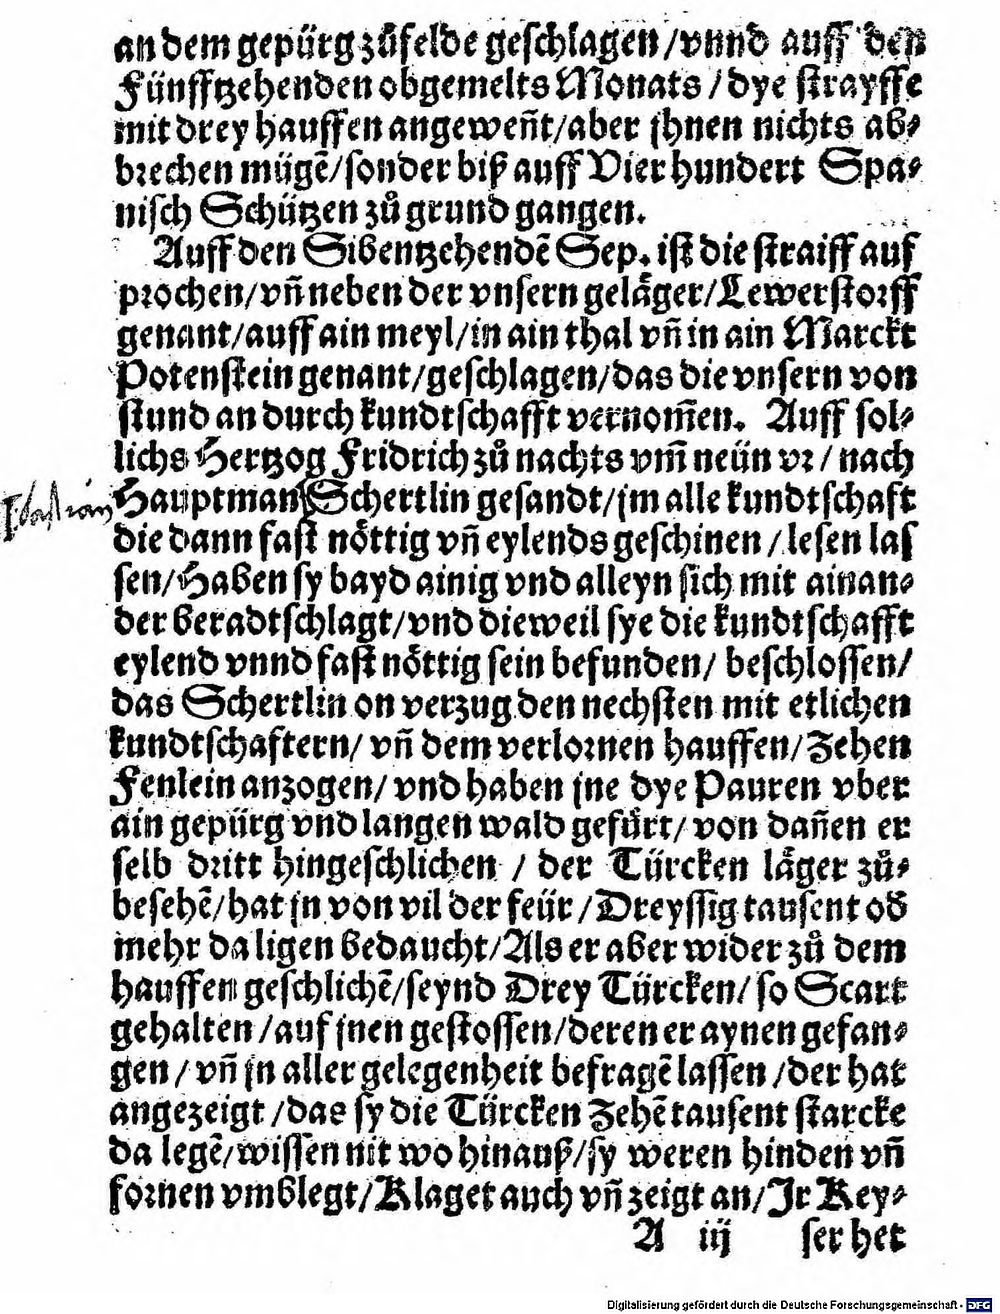 an dem gepürg zůfelde geſchlagen / vnnd auff den
Fünfftzehenden obgemelts Monats / dye ſtrayffe
mit drey hauffen angeweñt / aber jhnen nichts ab⸗
brechen mügē / ſonder biß auff Vier hundert Spa⸗
niſch Schützen zů grund gangen.
Auff den Sibentzehendē Sep. iſt die ſtraiff auf
prochen / vñ neben der vnſern geläger / Lewerſtorff
genant / auff ain meyl / in ain thal vñ in ain Marckt
Potenſtein genant / geſchlagen / das die vnſern von
ſtund an durch kundtſchafft vernom̃en. Auff ſol⸗
lichs Hertzog Fridrich zů nachts vm̃ neün vr / nach
Hauptman Schertlin geſandt / jm alle kundtſchaft
die dann faſt nöttig vñ eylends geſchinen / leſen laſ
ſen / Haben ſy bayd ainig vnd alleyn ſich mit ainan⸗
der beradtſchlagt / vnd dieweil ſye die kundtſchafft
eylend vnnd faſt nöttig ſein befunden / beſchloſſen /
das Schertlin on verzug den nechſten mit etlichen
kundtſchaftern / vñ dem verlornen hauffen / Zehen
Fenlein anzogen / vnd haben jne dye Pauren vber
ain gepürg vnd langen wald gefürt / von dañen er
ſelb dritt hingeſchlichen / der Türcken läger zů⸗
beſehē / hat jn von vil der feür / Dreyſſig tauſent od
mehr da ligen bedaucht / Als er aber wider zů dem
hauffen geſchlichē / ſeynd Drey Türcken / ſo Scart
gehalten / auf jnen geſtoſſen / deren er aynen gefan⸗
gen / vñ jn aller gelegenheit befragē laſſen / der hat
angezeigt / das ſy die Türcken Zehē tauſent ſtarcke
da legē / wiſſen nit wo hinauß / ſy weren hinden vñ
fornen vmblegt / Klaget auch vñ zeigt an / Jr Key⸗
A iij ſer het
Digitalisierung gefördert durch die Deutsche Forschungsgemeinschaft - DFG